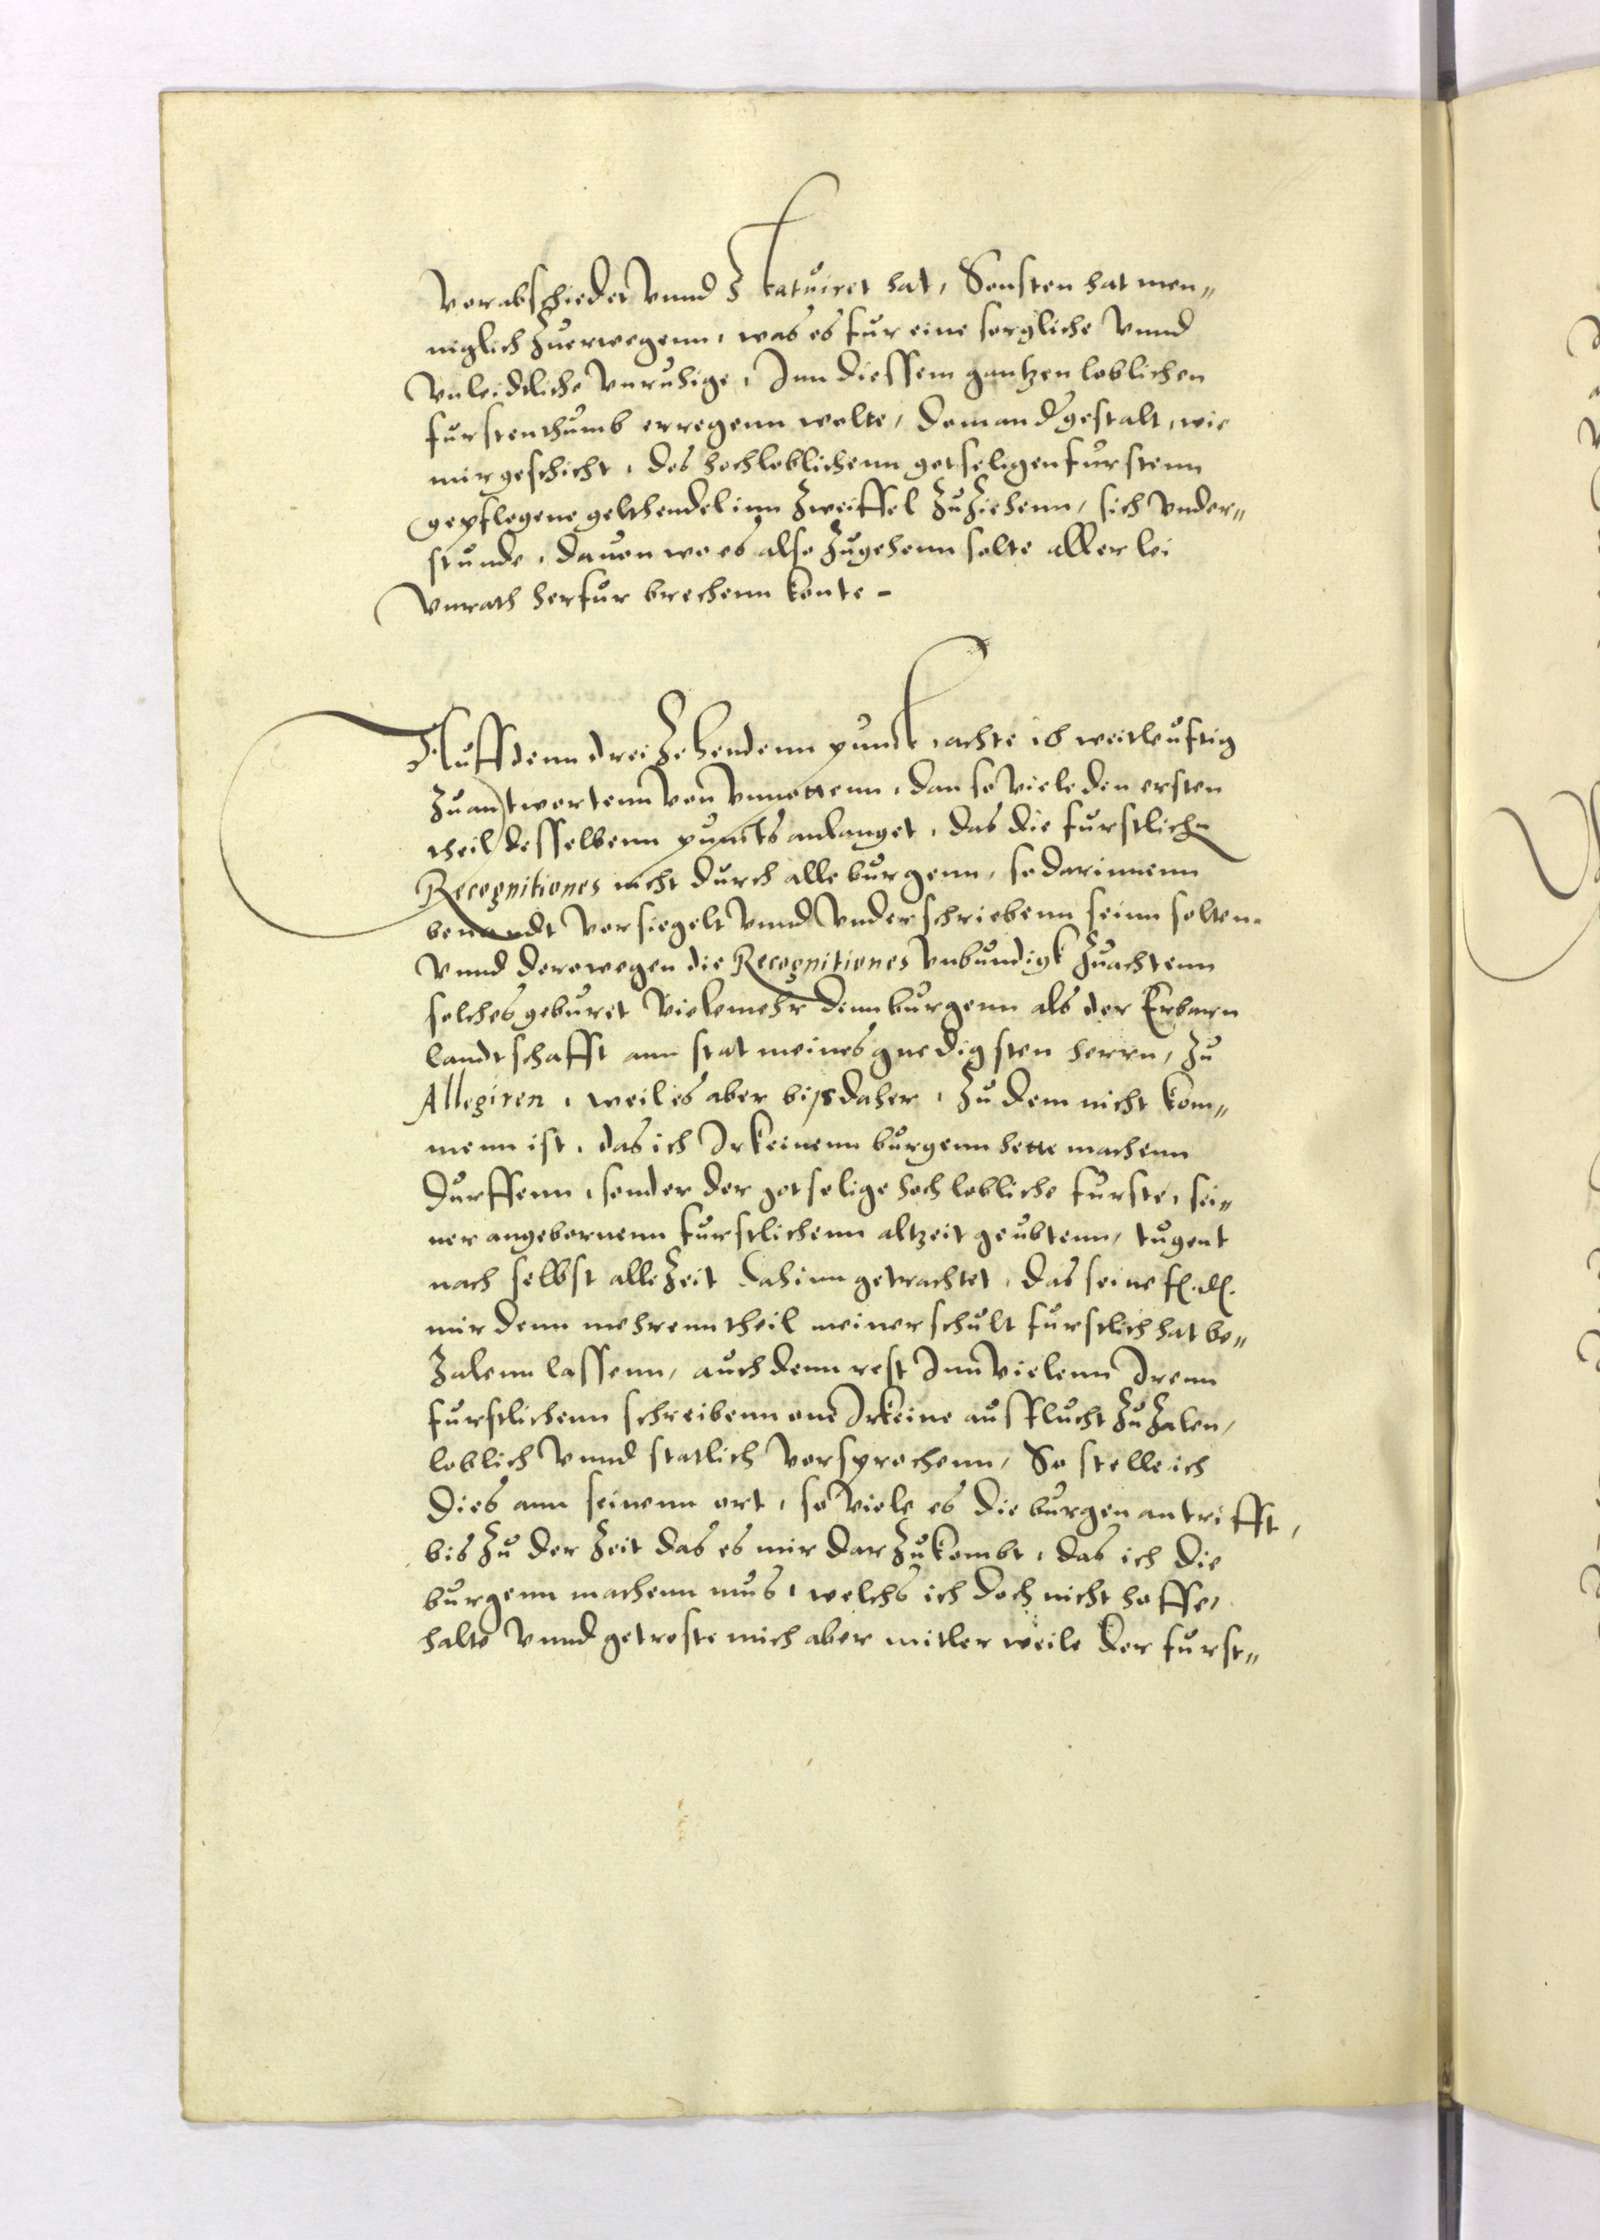 vorabschiedet vnnd Statuiret hat, Sonsten hat men„
niglich Zuerwegenn, was es fur eine sorgliche vnnd
vnleidtliche vnruhige, Inn diessem gantzen loblichen
furstenthumb erregenn wolte, do man dergestalt, wie
mir geschicht, des hochloblichenn gotseligen furstenn
gepflogene gelthendel inn Zweiffel Zu Ziehenn, sich vnder„
stunde, dauon wo es also Zugehenn solte allerlei
vnrath herfur brechenn konte -
Auff denn dreiZehendenn punct, achte ich weitleuftig
Zuantwortenn von vnnottenn, dan so viele den ersten
theil desselbenn puncts anlanget, das die furstliche
Recognitiones nicht durch alle burgenn, so darinnenn
benandt versiegelt vnnd vnderschriebenn seinn solten
vnnd derowegen die Recognitiones vnbundigk Zuachtenn
solches geburet vielemehr denn burgenn als der Erbarn
landtschafft ann stat meines gnedigsten herrn, Zu
Allegiren, weil es aber bis daher, Zu dem nicht kom„
menn ist, das ich Irkeinenn burgenn hette machenn
durffenn, sonder der gotselige hochlobliche furste, sei„
ner angebornenn furstlichenn altzeit geubtenn, tugent
nach selbst alle Zeit dahinn getrachtet, das seine f. d.
mir denn mehrenn theil meiner schult furstlich hat be„
Zalenn lassenn, auch denn rest Inn vielenn Irenn
furstlichenn schreibenn one Irkeine ausflucht Zu Zalen,
loblich vnnd statlich versprochenn, So stelle ich
dies ann seinenn ort, so viele es die burgen antrifft,
bis Zu der Zeit das es mir dar Zu kombt, das ich die
burgenn machenn mus, welchs ich doch nicht hoffe,
halte vnnd getroste mich aber mitler weile der furst„